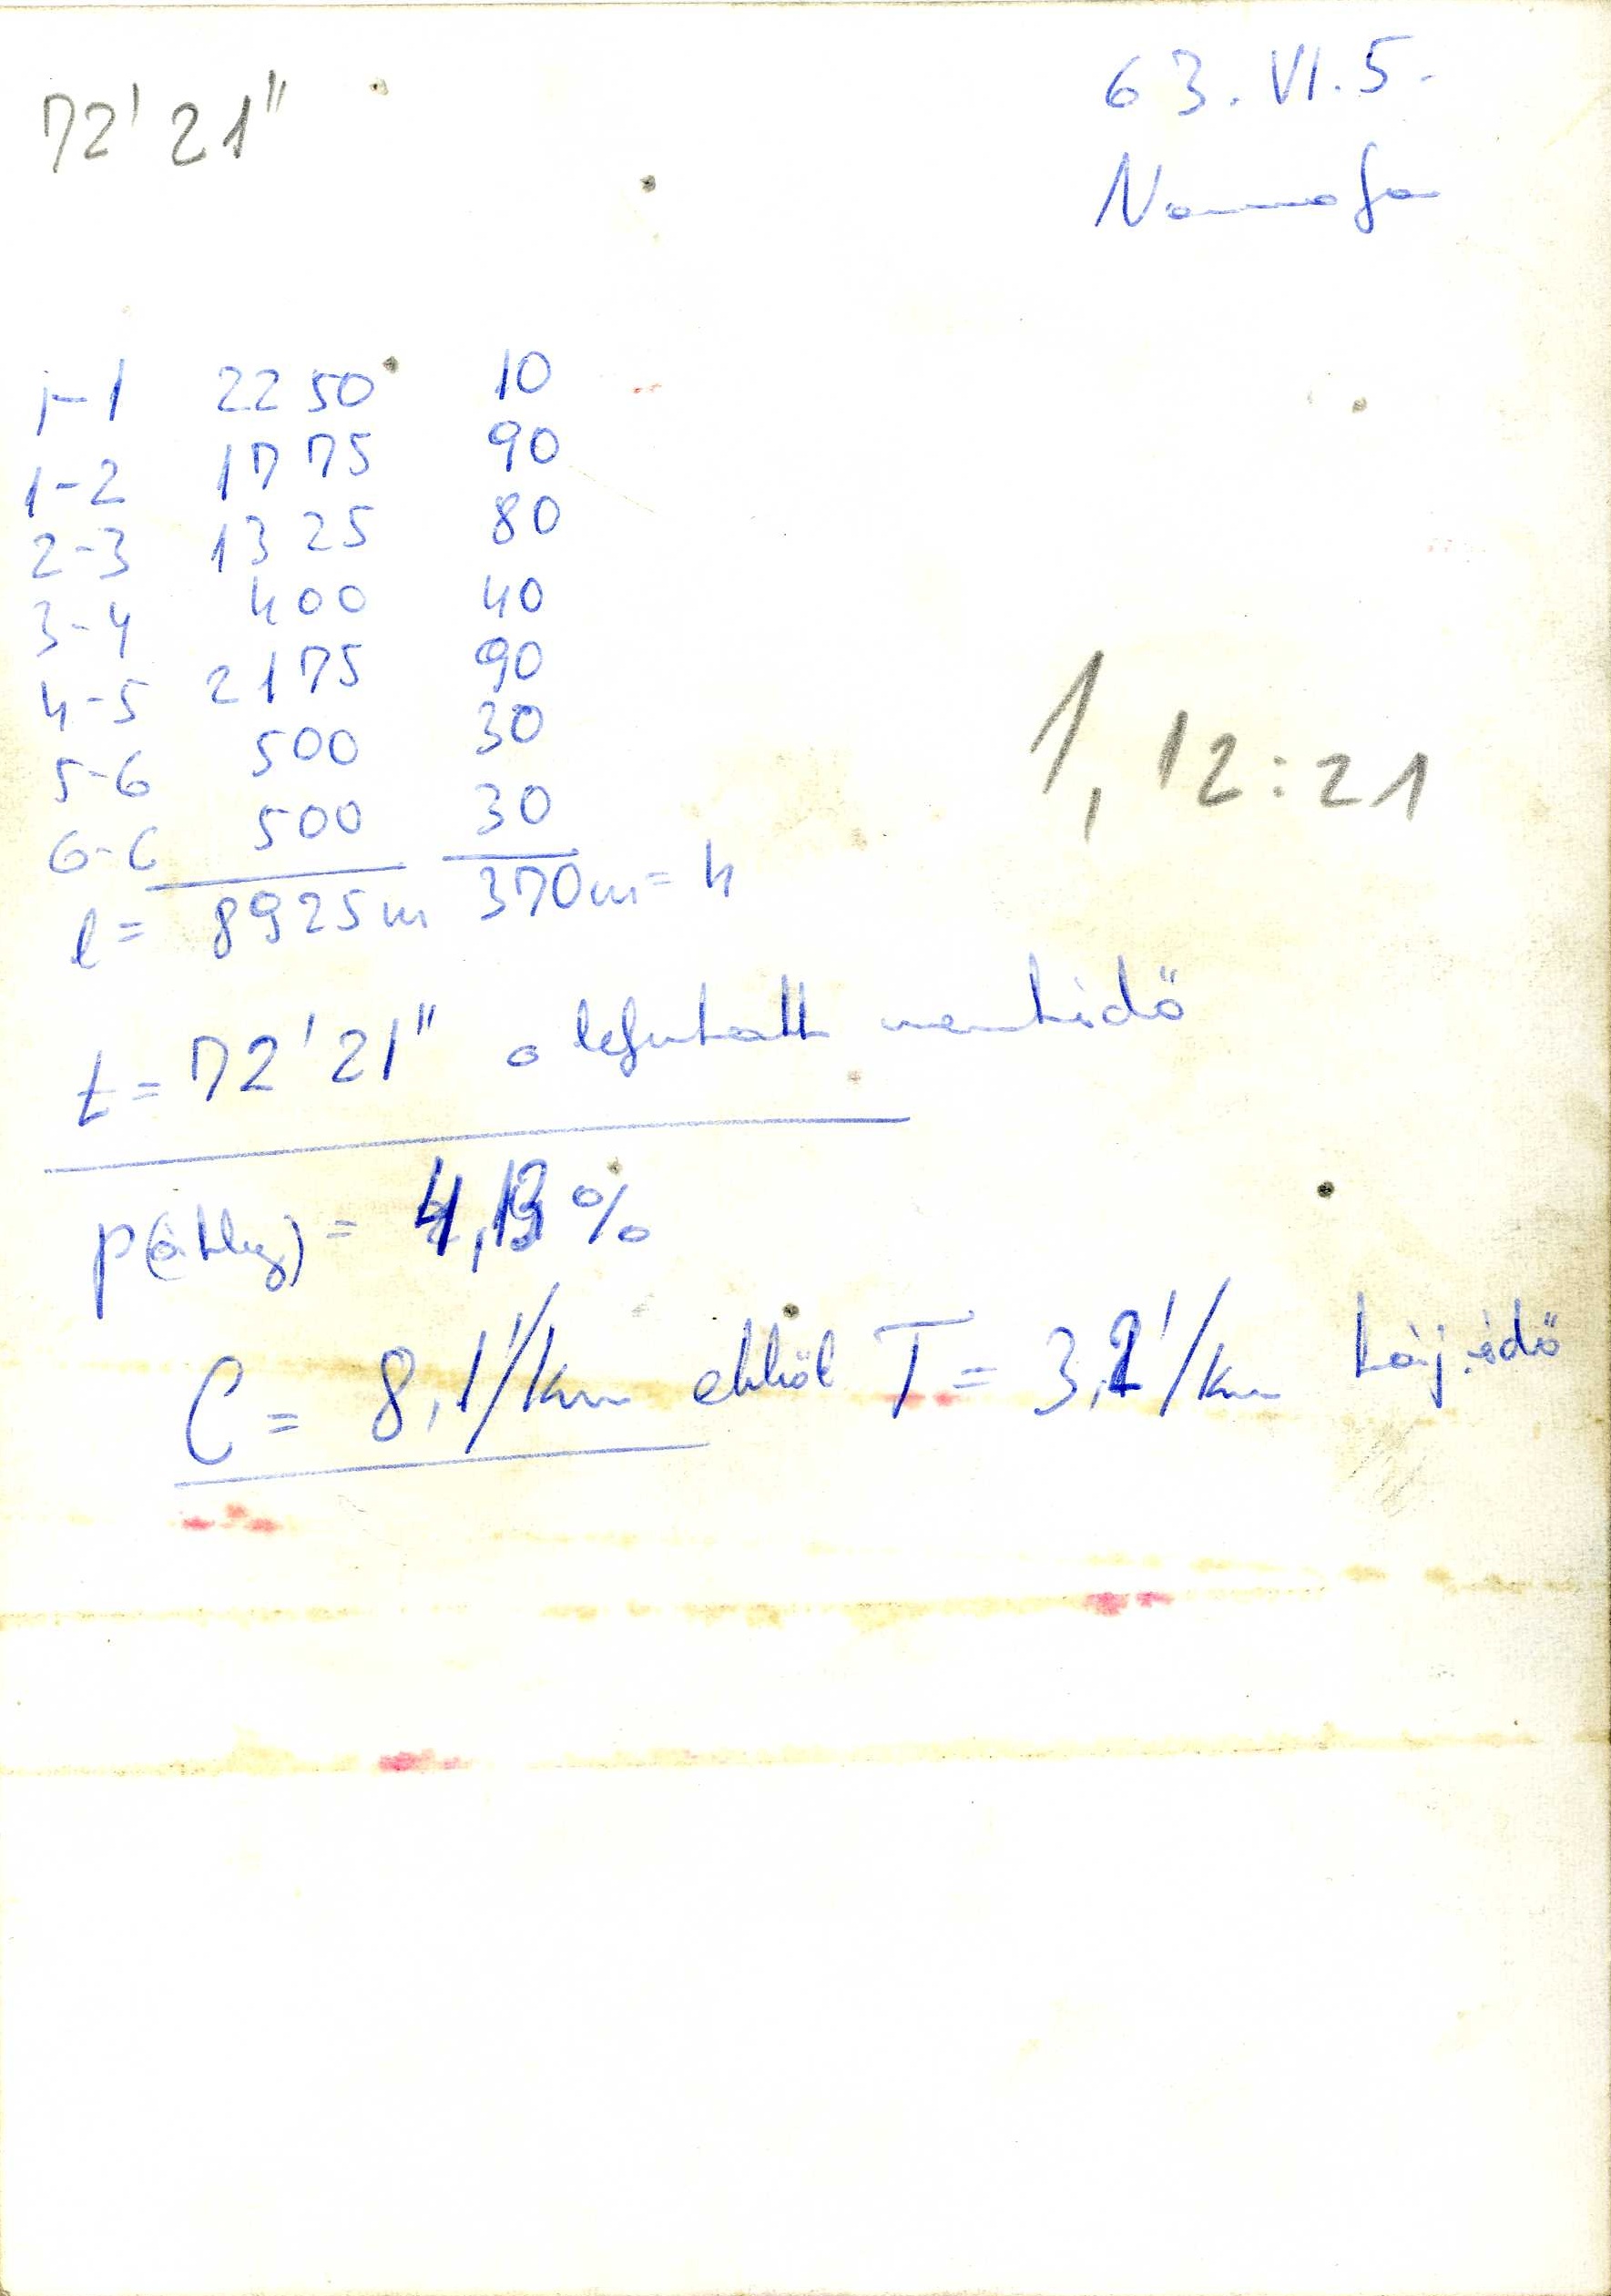 72' 21"
63. VI. 5.
Normafa
r-1 2250 10
1-2 1775 90
2-3 1325 80
3-4 400 40
4-5 2175 90
5-6 500 30
6-C 500 30
l = 8925m 370m = h
1, 12:21
t = 72' 21" a lefutott
p(átlag) = 4,13 %
C = 8,1'/km ebből T = 3,2'/km táj.idő